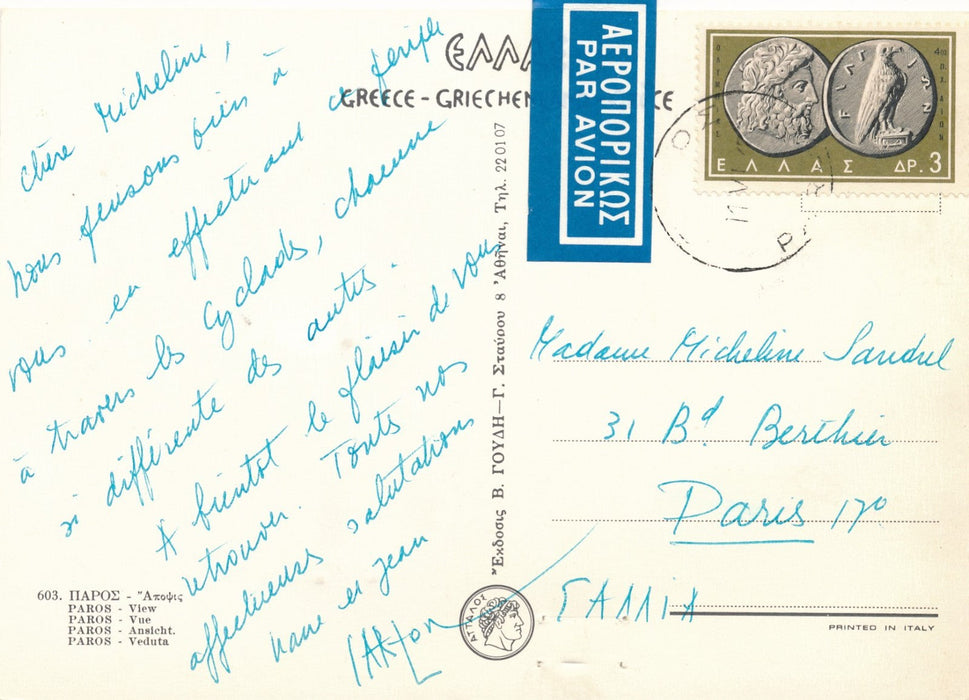 ΕΛΛ
GREECE - GRIECHEN CE
ΑΕΡΟΠΟΡΙΚΩΣ
PAR AVION
ΕΛΛΑΣ ΔΡ. 3
Chère Micheline,
Nous pensons bien à
vous en effectuant ce périple
à travers les Cyclades, chacune
si différente des autres.
A bientôt le plaisir de vous
retrouver. Toutes nos
affectueuses salutations
et Jean
Madame Micheline Sandrel
31 Bd Berthier
Paris 17o
ΓΑΛΛΙΑ
Ἔκδοσις Β. ΓΟΥΔΗ—Γ. Σταύρου 8 Ἀθῆναι, Τηλ. 220107
ΑΤΤΑΛΟΣ
603. ΠΑΡΟΣ - Ἄποψις
PAROS - View
PAROS - Vue
PAROS - Ansicht.
PAROS - Veduta
PRINTED IN ITALY